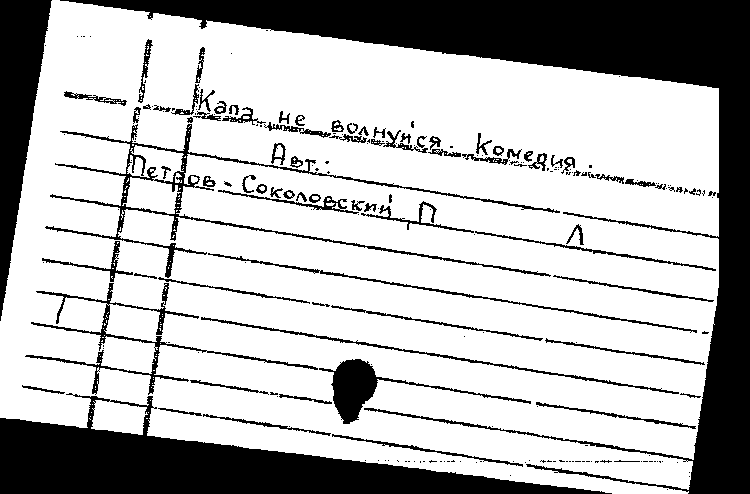 Капа не волнуйся. Комедия.
Авт.:
Петров-Соколовский, П
Л